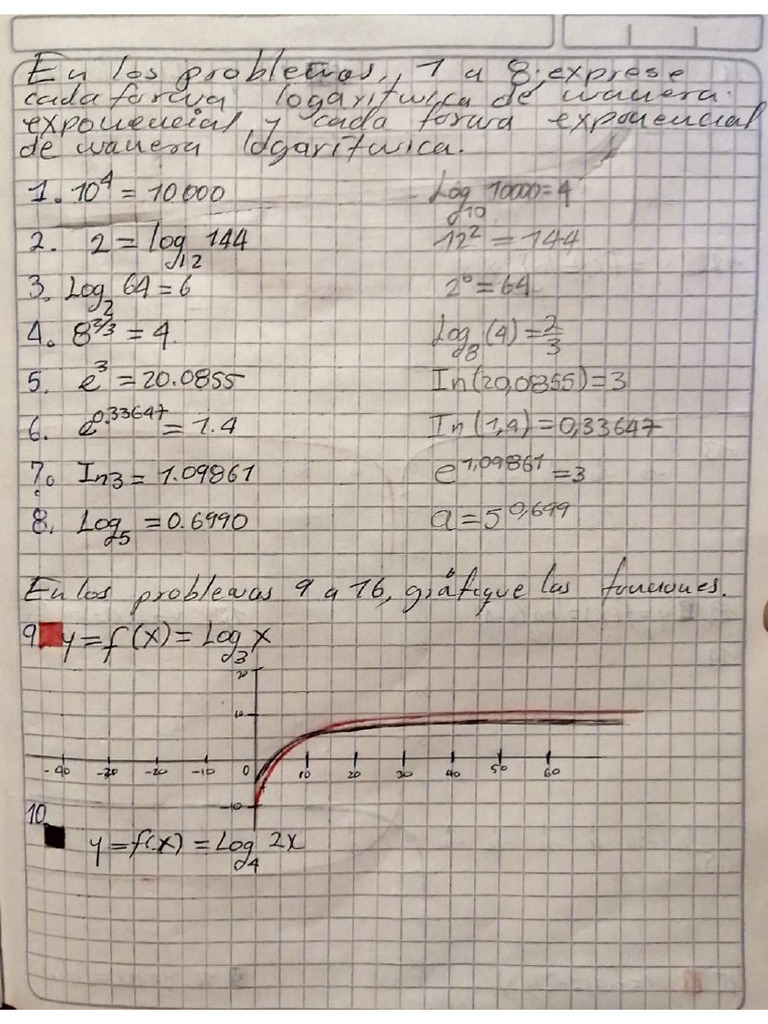 En los problemas, 1 a 8. exprese
cada forma logaritmica de manera
exponencial y cada forma exponencial
de manera logaritmica.
1. 10⁴ = 10000 Log₁₀ 10000=4
2. 2 = log₁₂ 144 12² = 144
3. Log₂ 64 = 6 2⁶ = 64
4. 8^2/3 = 4 Log₈ (4) = 2/3
5. e³ = 20.0855 In(20,0855) = 3
6. e^0.33647 = 1.4 In (1,4) = 0,33647
7. In3 = 1.09861 e^1,09861 = 3
8. Log₅ = 0.6990 a = 5^0,699
En los problemas 9 a 16, gráfique las funciones.
9 y = f(x) = Log₃ x
20
10
-40 -30 -20 -10 0 10 20 30 40 50 60
-10
10.
y = f(x) = Log₄ 2x